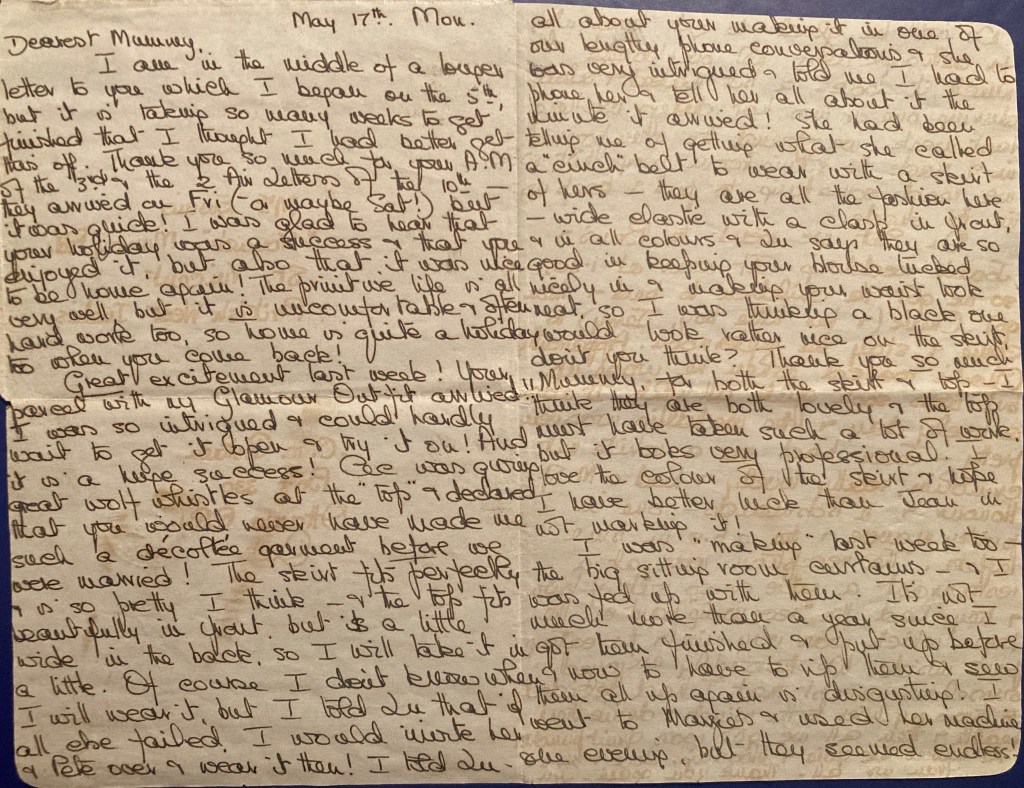 May 17th. Mon.
Dearest Mummy,
I am in the middle of a longer
letter to you which I began on the 5th,
but it is taking so many weeks to get
finished that I thought I had better get
this off. Thank you so much for your A.M
of the 3rd & the 2 Air Letters of the 10th —
they arrived on Fri (or maybe Sat!) but
it was quick! I was glad to hear that
your holiday was a success & that you
enjoyed it, but also that it was nice
to be home again! The primitive life is all
very well, but it is uncomfortable & often
hard work too, so home is quite a holiday
to when you come back!
Great excitement last week! Your
parcel with my Glamour Outfit arrived!!
I was so intrigued & could hardly
wait to get it open & try it on! And
it is a huge success! Cec was giving
great wolf whistles at the "top" & declared
that you would never have made me
such a décoltée garment before we
were married! The skirt fits perfectly
& is so pretty I think — & the top fits
beautifully in front, but is a little
wide in the back, so I will take it in
a little. Of course I don't know when
I will wear it, but I told Lu that if
all else failed, I would invite her
& Pete over & wear it then! I told Lu
all about your making it in one of
our lengthy phone conversations & she
was very intrigued & told me I had to
phone her & tell her all about it the
minute it arrived! She had been
telling me of getting what she called
a "cinch" belt to wear with a skirt
of hers — they are all the fashion here
— wide elastic with a clasp in front,
& in all colours & Lu says they are so
good in keeping your blouse tucked
nicely in & making your waist look
neat, so I was thinking a black one
would look rather nice on the skirt,
don't you think? Thank you so much
Mummy, for both the skirt & top — I
think they are both lovely & the top
must have taken such a lot of work,
but it looks very professional. I
love the colour of the skirt & hope
I have better luck than Jean in
not marking it!
I was "making" last week too —
the big sitting room curtains — & I
was fed up with them. It's not
much more than a year since I
got them finished & put up before
& now to have to rip them & sew
them all up again is disgusting! I
went to Margies & used her machine
one evening, but they seemed endless!